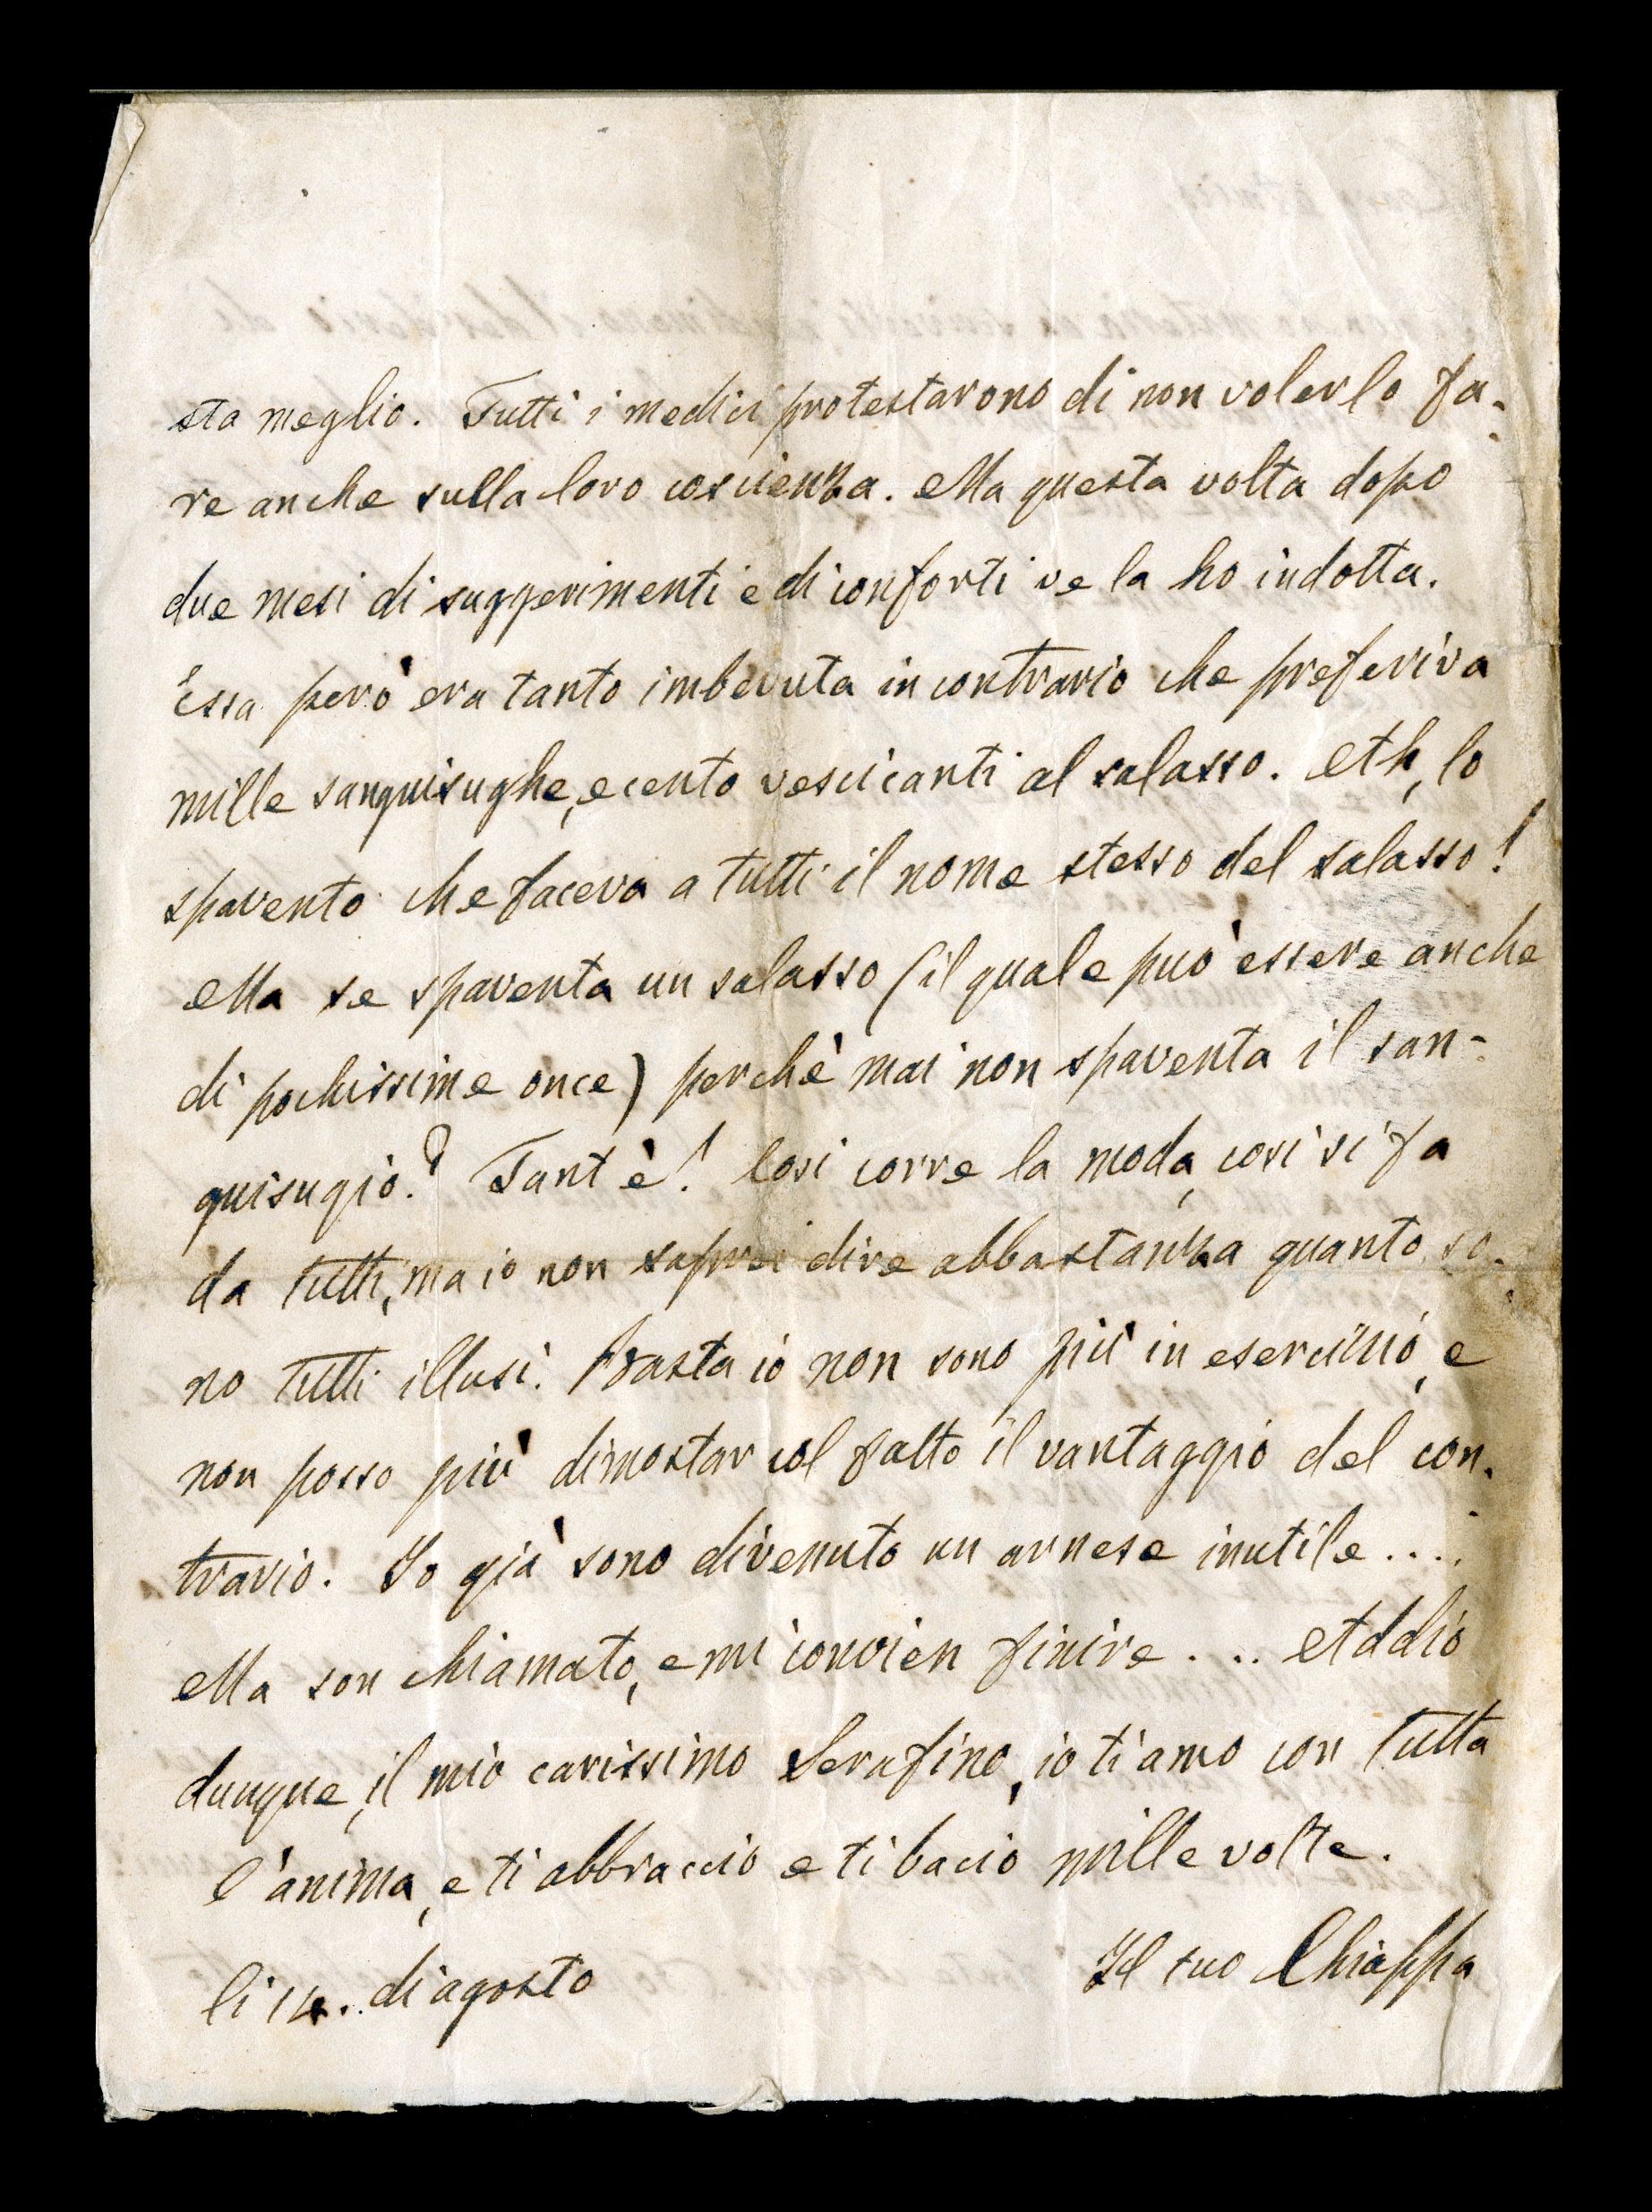 sta meglio. Tutti i medici protestarono di non volerlo fa-
re anche sulla loro coscienza. Ma questa volta dopo
due mesi di suggerimenti e di conforti ve la ho indotta.
Essa però era tanto imbevuta in contrario che preferiva
mille sanguisughe, e cento vescicanti al salasso. Ah, lo
spavento che faceva a tutti il nome stesso del salasso!
Ma se spaventa un salasso (il quale può essere anche
di pochissime once) perchè mai non spaventa il san-
guisugio? Tant è! Così corre la moda, così si fa
da tutti, ma io non saprei dire abbastanza quanto so-
no tutti illusi. Basta io non sono più in esercizio, e
non posso più dimostar col fatto il vantaggio del con-
trario. Io già sono divenuto un arnese inutile....
Ma son chiamato, e mi convien finire... Addio
dunque, il mio carissimo Serafino, io ti amo con tutta
l'anima, e ti abbraccio e ti bacio mille volte.
li 14. di agosto Il tuo Chiappa